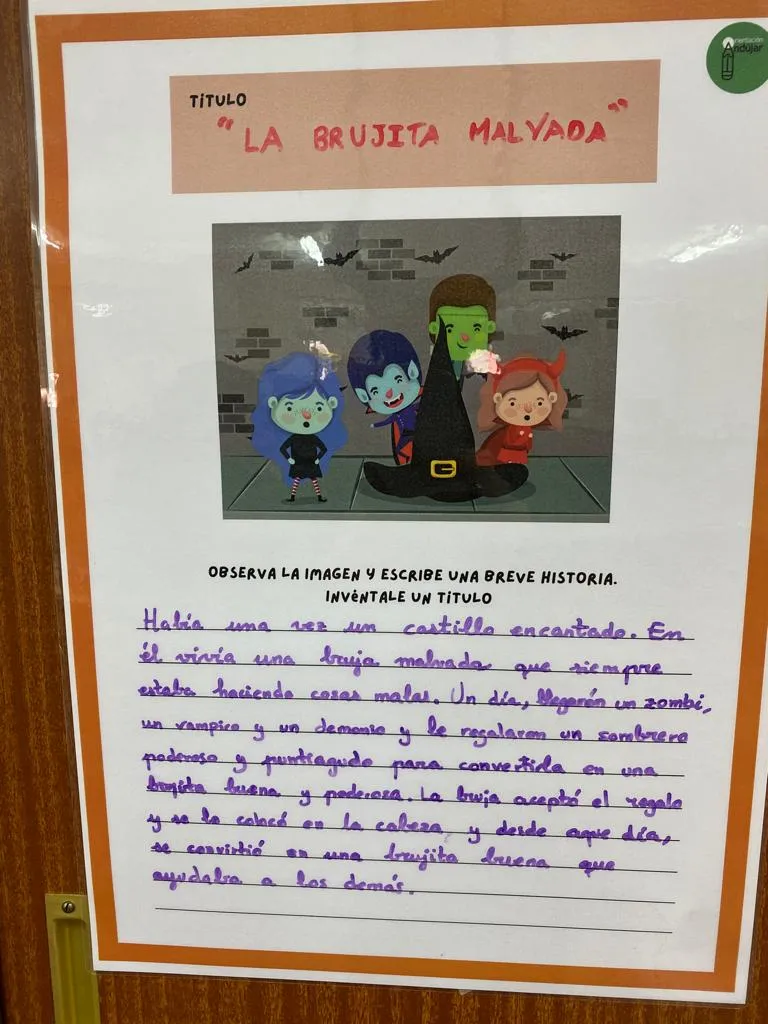 Orientación
Andújar
TÍTULO
"LA BRUJITA MALVADA"
OBSERVA LA IMAGEN Y ESCRIBE UNA BREVE HISTORIA.
INVÉNTALE UN TÍTULO
Había una vez un castillo encantado. En
él vivía una bruja malvada que siempre
estaba haciendo cosas malas. Un día, llegarón un zombi,
un vampiro y un demonio y le regalaron un sombrero
poderoso y puntiagudo para convertirla en una
brujita buena y poderosa. La bruja aceptó el regalo
y se lo colocó en la cabeza y desde aque día,
se convirtió en una brujita buena que
ayudaba a los demás.